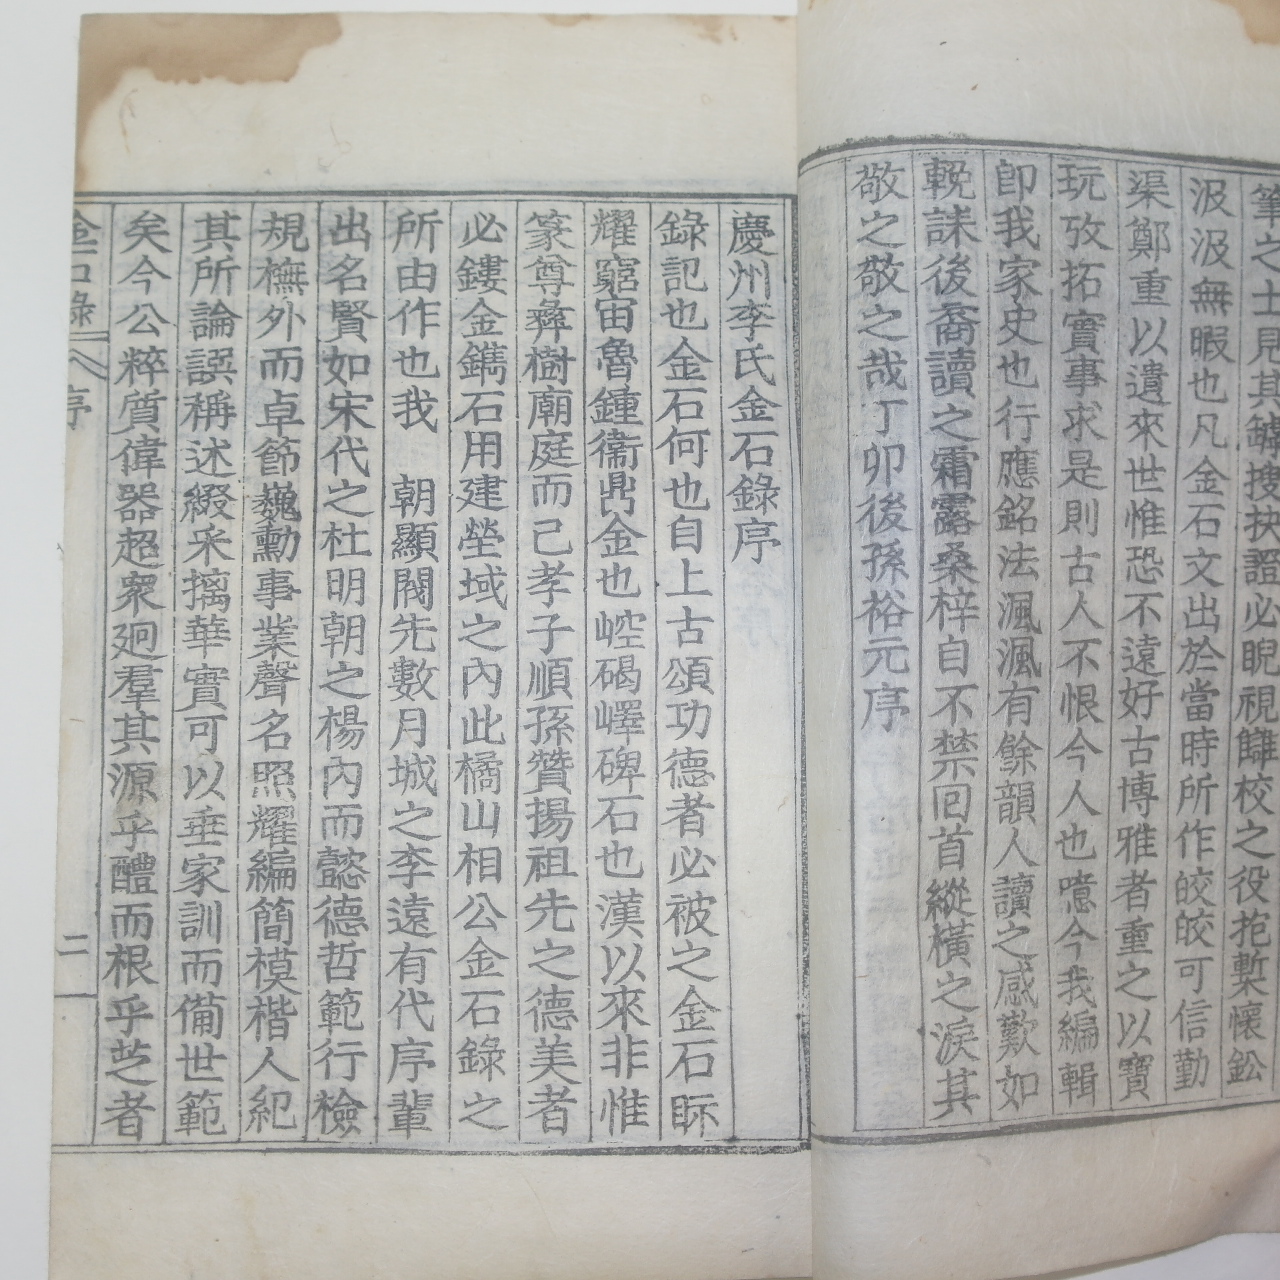 筆之士見其罅搜抉證必睨視讎校之役抱槧懷鈆
汲汲無暇也凡金石文出於當時所作皎皎可信勤
渠鄭重以遺來世惟恐不遠好古博雅者重之以寶
玩攷拓實事求是則古人不恨今人也噫今我編輯
卽我家史也行應銘法渢渢有餘韻人讀之感歎如
輓誄後裔讀之霜露桑梓自不禁回首縱橫之淚其
敬之敬之哉丁卯後孫裕元序
慶州李氏金石錄序
錄記也金石何也自上古頌功德者必被之金石眎
耀窮宙魯鐘衞鼎金也崆碣嶧碑石也漢以來非惟
篆尊彝樹廟庭而已孝子順孫贊揚祖先之德美者
必鏤金鐫石用建塋域之內此橘山相公金石錄之
所由作也我 朝顯閥先數月城之李遠有代序輩
出名賢如宋代之杜明朝之楊內而懿德哲範行檢
規橅外而卓節巍勳事業聲名照耀編簡模楷人紀
其所論譔稱述綴采摛華實可以垂家訓而備世範
矣今公粹質偉器超衆廻羣其源乎醴而根乎芝者
金石錄 序 二